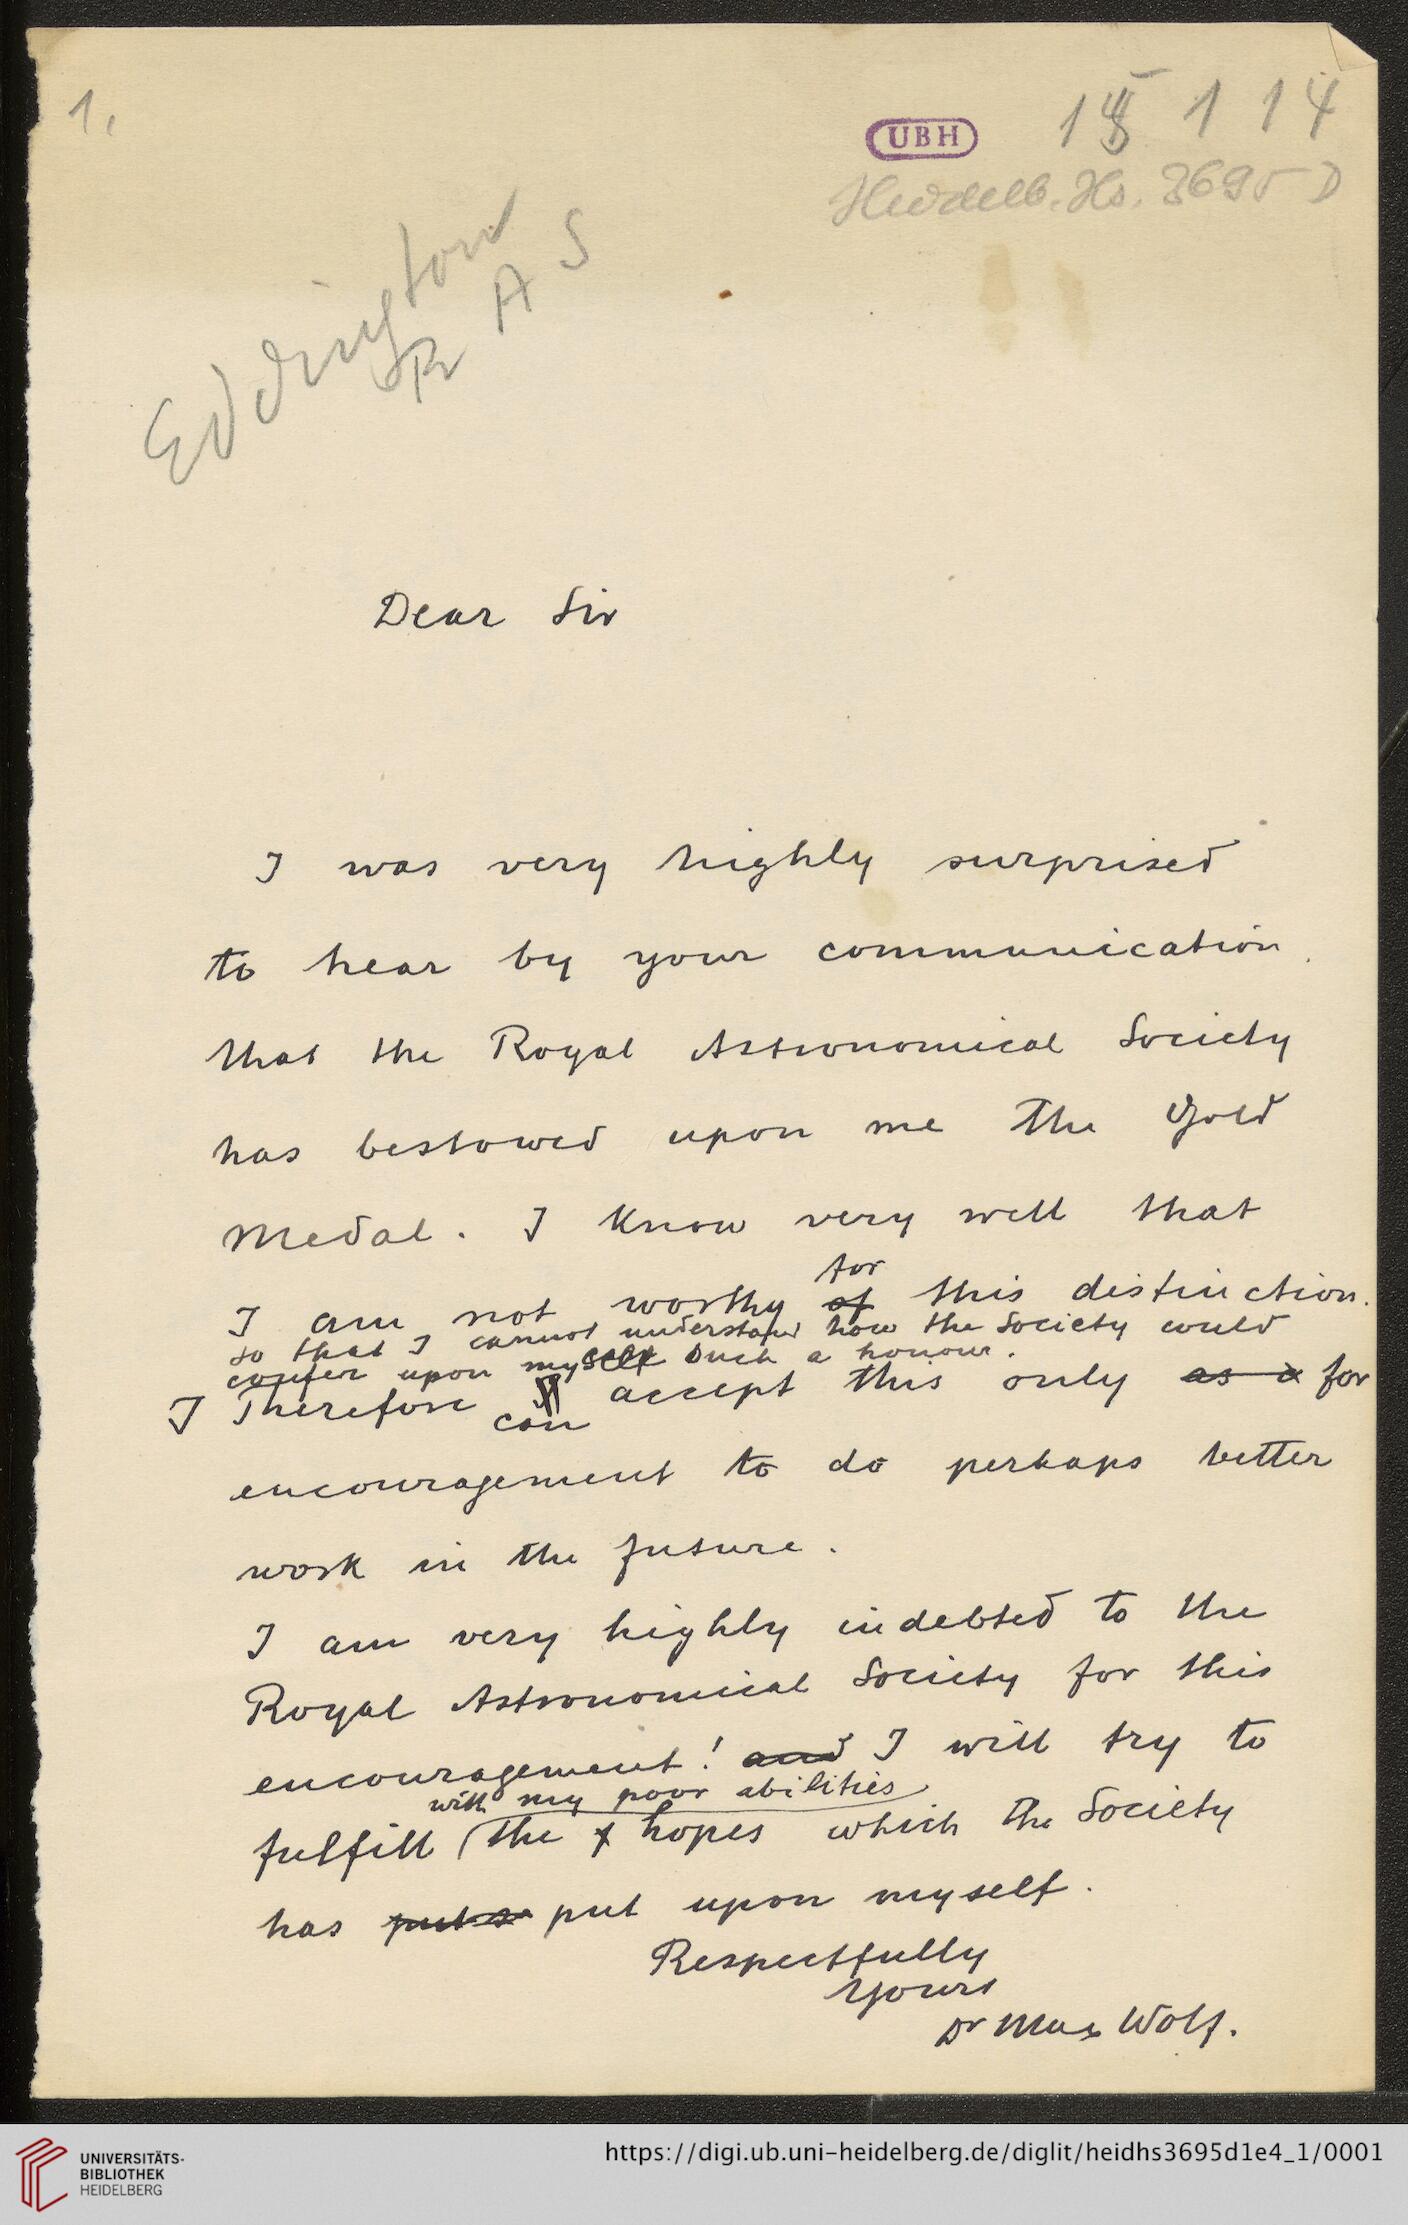 1.
UBH
15 1 14
Heidelb. Hs. 3695 D
Eddington
R A S
Dear Sir
I was very highly surprised
to hear by your communication
that the Royal Astronomical Society
has bestowed upon me the Gold
Medal. I know very well that
for
I am not worthy of this distinction.
so that I cannot understand how the Society could
confer upon myself such a honour.
I Therefore can accept this only as a for
encouragement to do perhaps better
work in the future.
I am very highly indebted to the
Royal Astronomical Society for this
encouragement! and I will try to
with my poor abilities
fulfill (the hopes which the Society
has put put upon myself.
Respectfully
Yours
Dr Max Wolf.
UNIVERSITÄTS-
BIBLIOTHEK
HEIDELBERG
https://digi.ub.uni-heidelberg.de/diglit/heidhs3695d1e4_1/0001